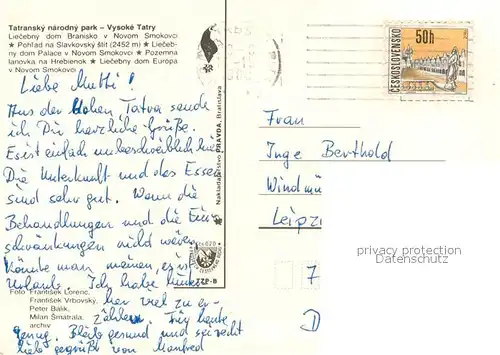 Tatranský národný park – Vysoké Tatry
Liečebný dom Branisko v Novom Smokovci
★ Pohľad na Slavkovský štít (2452 m) ★ Liečeb-
ný dom Palace v Novom Smokovci ★ Pozemná
lanovka na Hrebienok ★ Liečebný dom Europa
v Novom Smokovci
Liebe Mutti!
Aus der Hohen Tatra sende
ich Dir herzliche Grüße.
Es ist einfach unbeschreiblich hier.
Die Unterkunft und das Essen
sind sehr gut. Wenn die
Behandlungen und die Ein-
schränkungen nicht wären
könnte man meinen, es ist
Urlaub. Ich habe
hier viel zu er-
zählen. Für heute
genug. Bleib gesund und sei recht
lieb gegrüßt von Manfred
Foto František Lorenc,
František Vrbovský,
Peter Balik,
Milan Šmatrala,
archiv
Nakladateľstvo PRAVDA, Bratislava
ČESKOSLOVENSKO
50h
Frau
Inge Berthold
Windmü
Leipzi
privacy protection
© oldthing.com
7
D